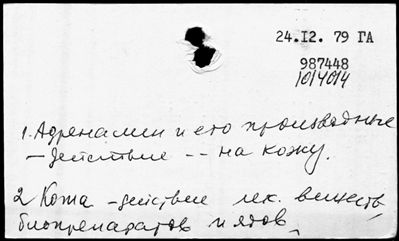 24.I2. 79 ГА
987448
1014014
1. Адреналин и его производные
— действие -- на кожу.
2 Кожа – действие лек. веществ,
биопрепаратов и ядов